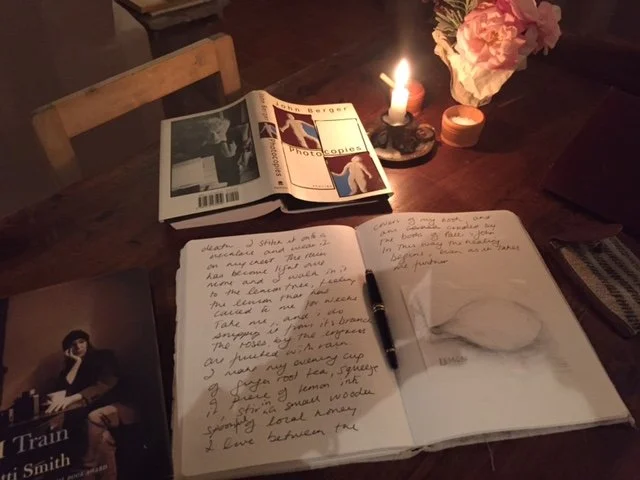 John Berger
Photocopies
John Berger
Photocopies
M Train
Patti Smith
death. I stitch it onto a
necklace and wear it
on my chest. The rain
has become light over
me and I walk in it
to the lemon tree, feeling
the lemon that has
called to me for weeks
Take me, and, I do
snipping it from its branch
The roses, by the
are pushed with rain.
I make my evening cup
of ginger root tea, squeeze
a piece of lemon into
it, stir in a small wooden
spoonful of local honey
I live between the
covers of my book, and
am cradled by
the books of Patti & John
In this way the healing
begins, even as it takes
me further
LEMON